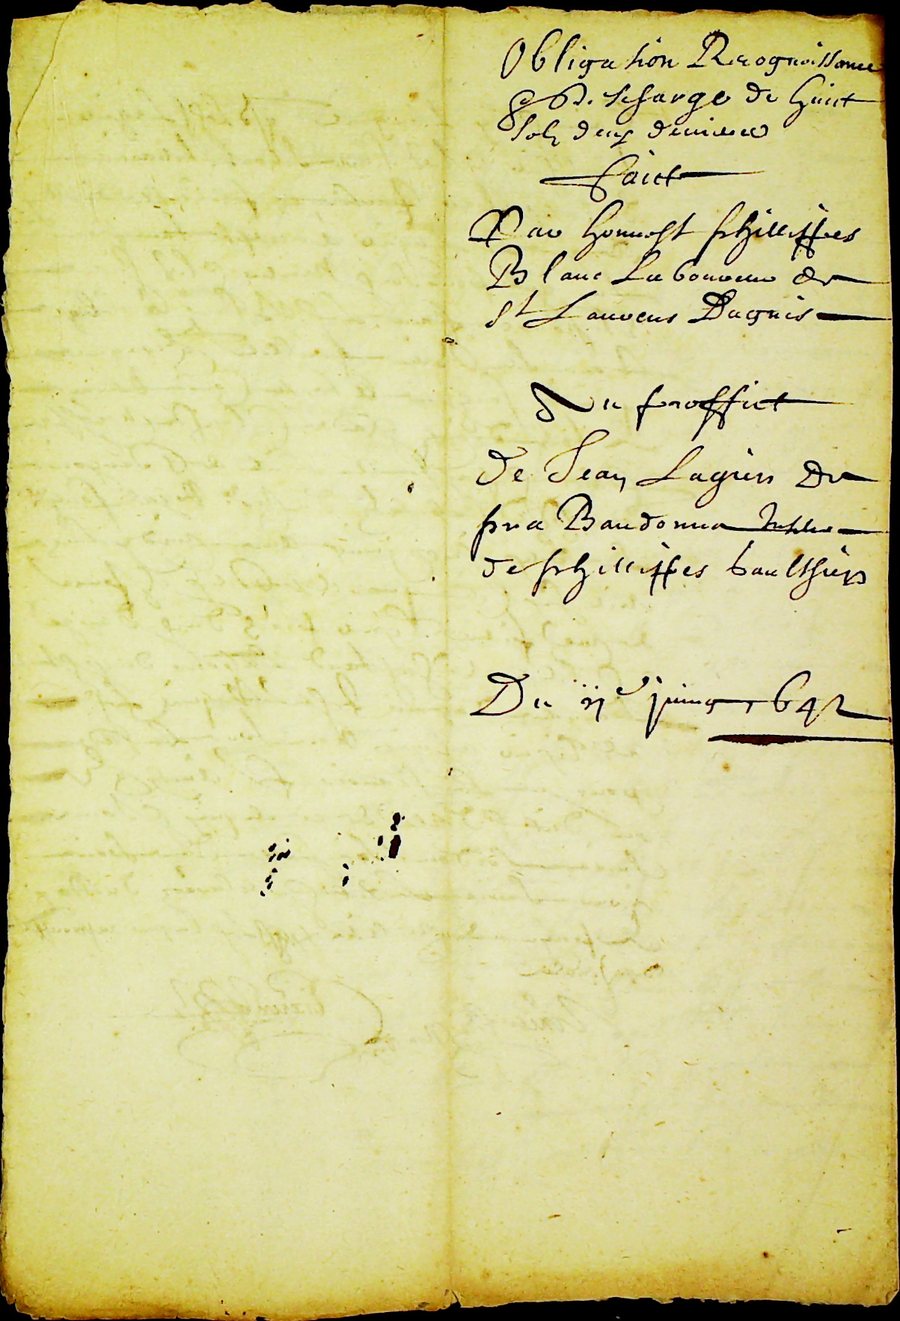 Obligation Recognoissance
& descharge de huict
solz deux deniers
Faict
Par honnest Phillippes
Blanc Laboureur de
St Laurens Dagnis
Au proffict
de Jean Lagiers de
pra Baudonna
de Phillippes Gaulthiers
Du juing 1642